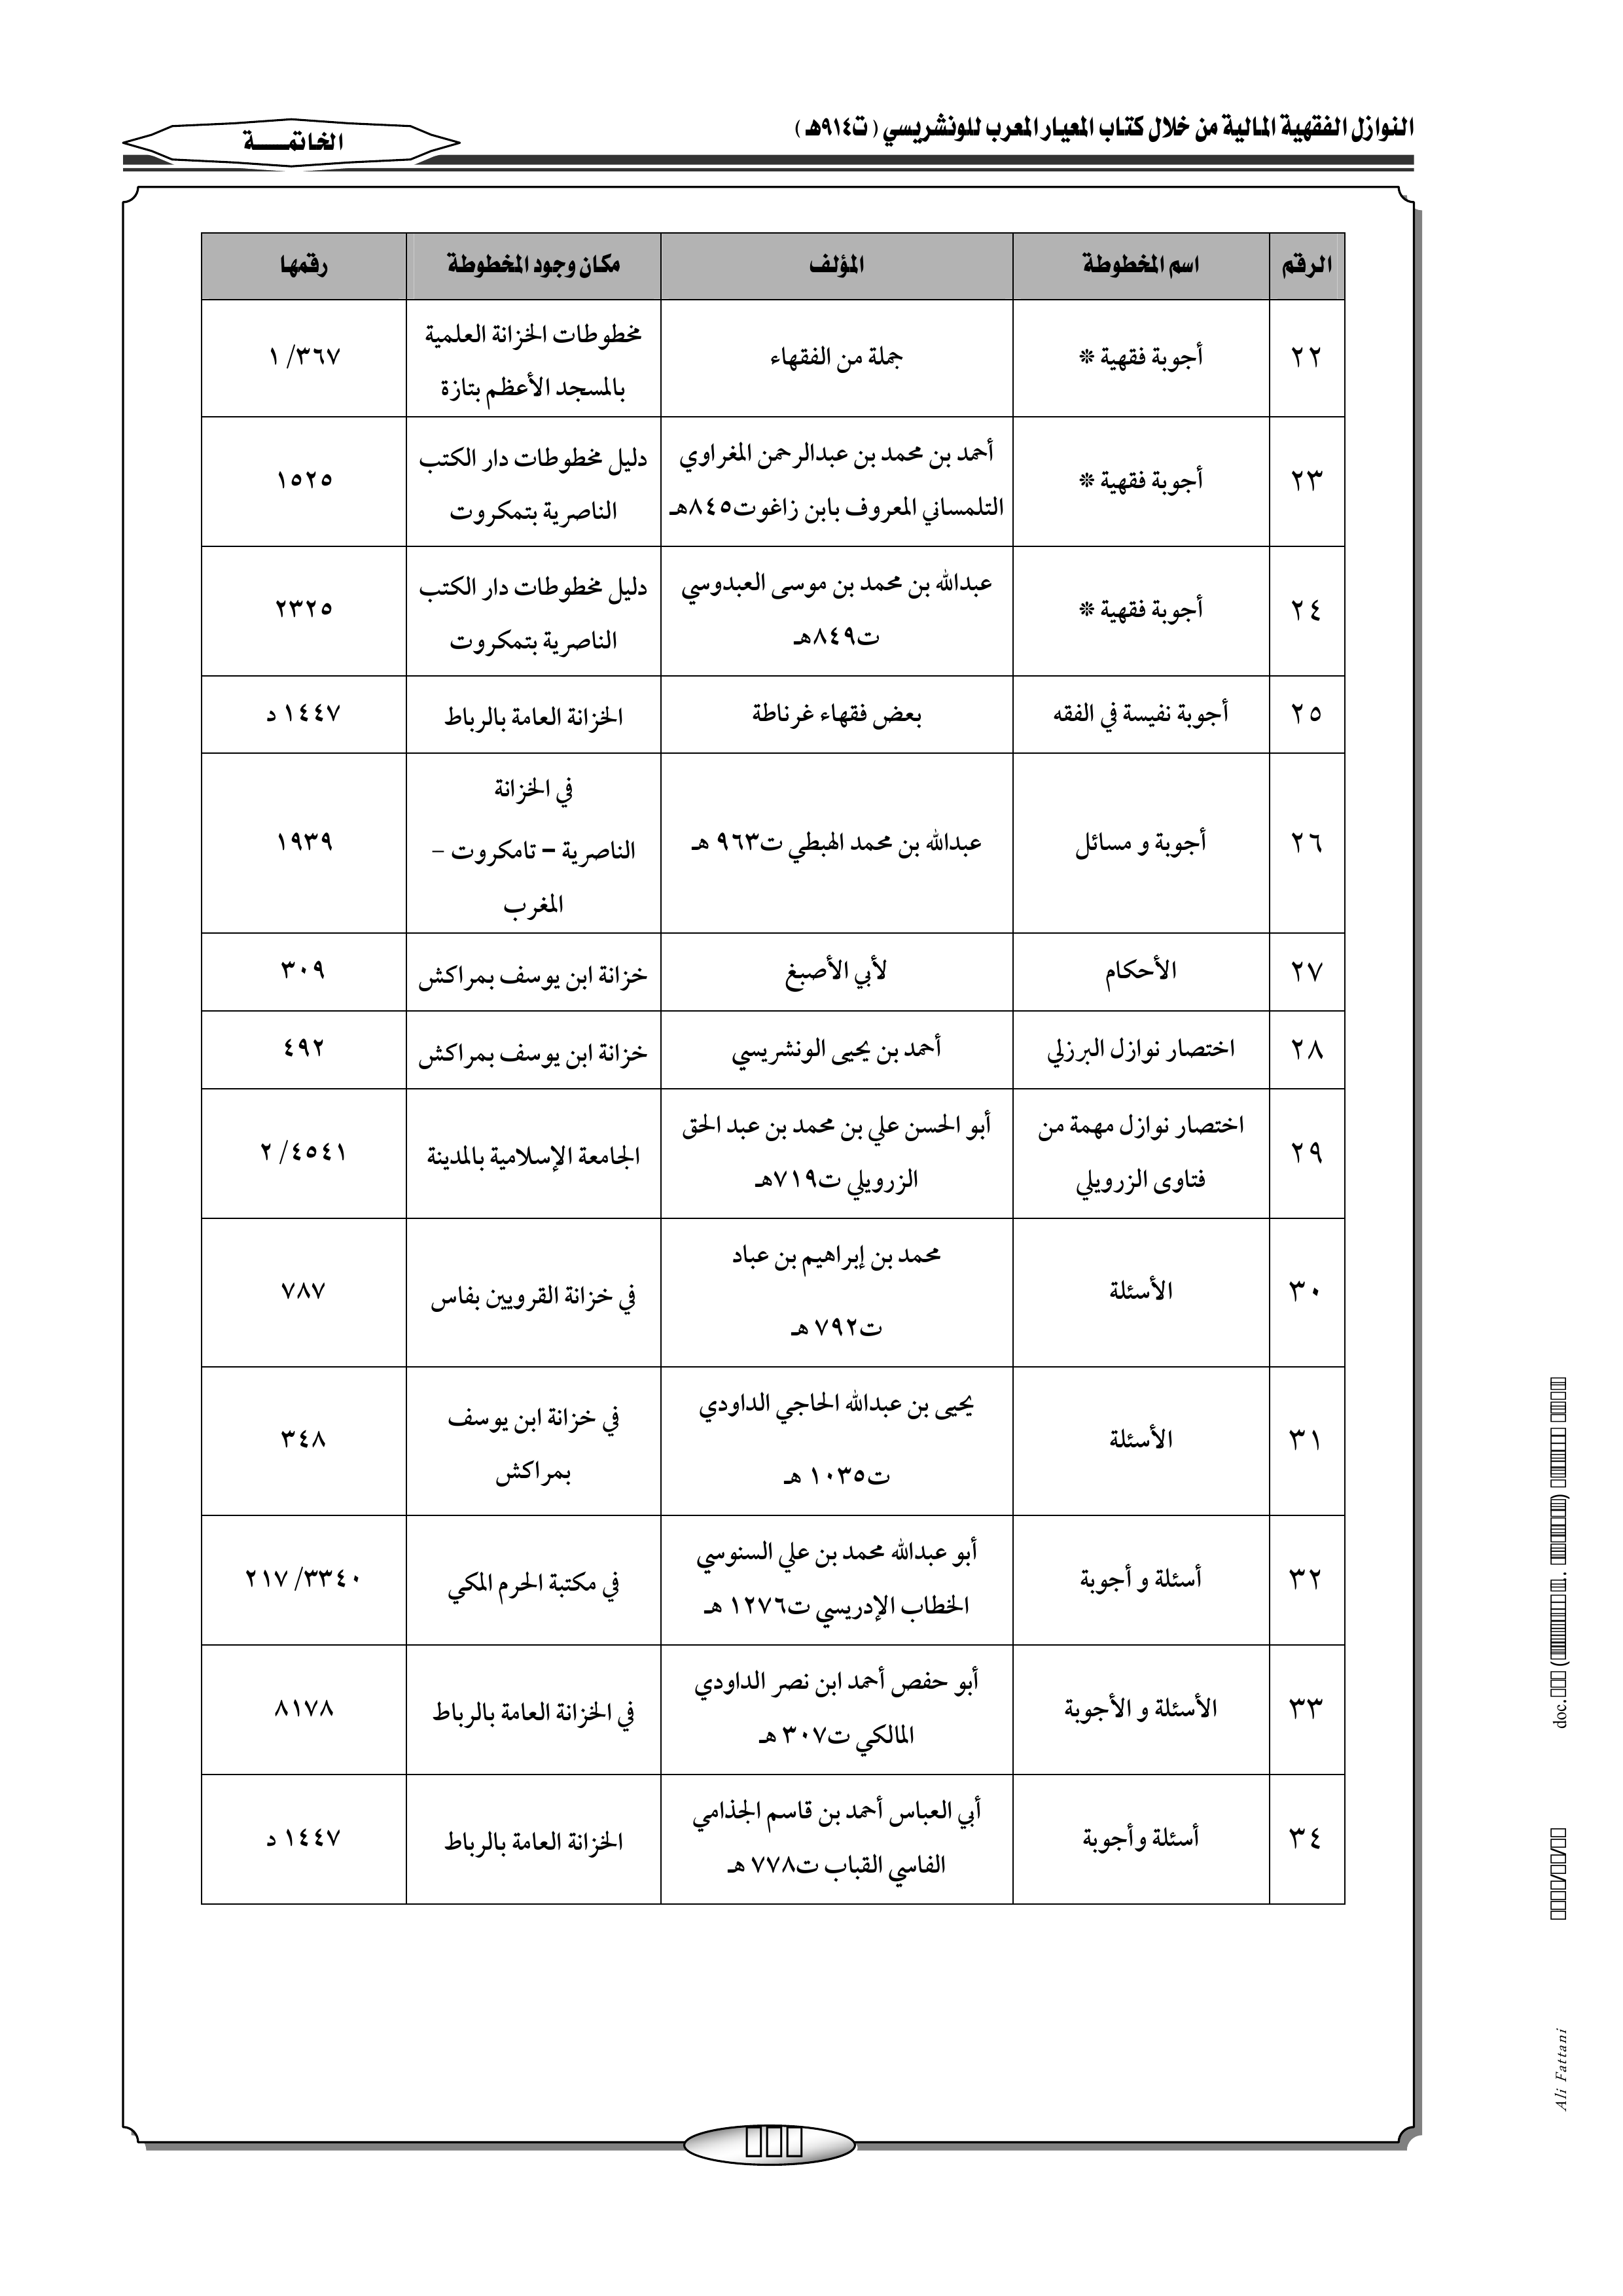 النوازل الفقهية المالية من خلال كتاب المعيار المعرب للونشريسي ( ت٩١٤هـ )
الخاتمـــــة
الرقم اسم المخطوطة المؤلف مكان وجود المخطوطة رقمها
٢٢ أجوبة فقهية * جملة من الفقهاء مخطوطات الخزانة العلمية
بالمسجد الأعظم بتازة ٣٦٧/ ١
٢٣ أجوبة فقهية * أحمد بن محمد بن عبدالرحمن المغراوي
التلمساني المعروف بابن زاغوت٨٤٥هـ دليل مخطوطات دار الكتب
الناصرية بتمكروت ١٥٢٥
٢٤ أجوبة فقهية * عبدالله بن محمد بن موسى العبدوسي
ت٨٤٩هـ دليل مخطوطات دار الكتب
الناصرية بتمكروت ٢٣٢٥
٢٥ أجوبة نفيسة في الفقه بعض فقهاء غرناطة الخزانة العامة بالرباط ١٤٤٧ د
٢٦ أجوبة و مسائل عبدالله بن محمد الهبطي ت٩٦٣ هـ في الخزانة
الناصرية – تامكروت –
المغرب ١٩٣٩
٢٧ الأحكام لأبي الأصبغ خزانة ابن يوسف بمراكش ٣٠٩
٢٨ اختصار نوازل البرزلي أحمد بن يحيى الونشريسي خزانة ابن يوسف بمراكش ٤٩٢
٢٩ اختصار نوازل مهمة من
فتاوى الزرويلي أبو الحسن علي بن محمد بن عبد الحق
الزرويلي ت٧١٩هـ الجامعة الإسلامية بالمدينة ٤٥٤١/ ٢
٣٠ الأسئلة محمد بن إبراهيم بن عباد
ت٧٩٢ هـ في خزانة القرويين بفاس ٧٨٧
٣١ الأسئلة يحيى بن عبدالله الحاجي الداودي
ت١٠٣٥ هـ في خزانة ابن يوسف
بمراكش ٣٤٨
٣٢ أسئلة و أجوبة أبو عبدالله محمد بن علي السنوسي
الخطاب الإدريسي ت١٢٧٦ هـ في مكتبة الحرم المكي ٣٣٤٠/ ٢١٧
٣٣ الأسئلة و الأجوبة أبو حفص أحمد ابن نصر الداودي
المالكي ت٣٠٧ هـ في الخزانة العامة بالرباط ٨١٧٨
٣٤ أسئلة وأجوبة أبي العباس أحمد بن قاسم الجذامي
الفاسي القباب ت٧٧٨ هـ الخزانة العامة بالرباط ١٤٤٧ د
doc.
Ali Fattani